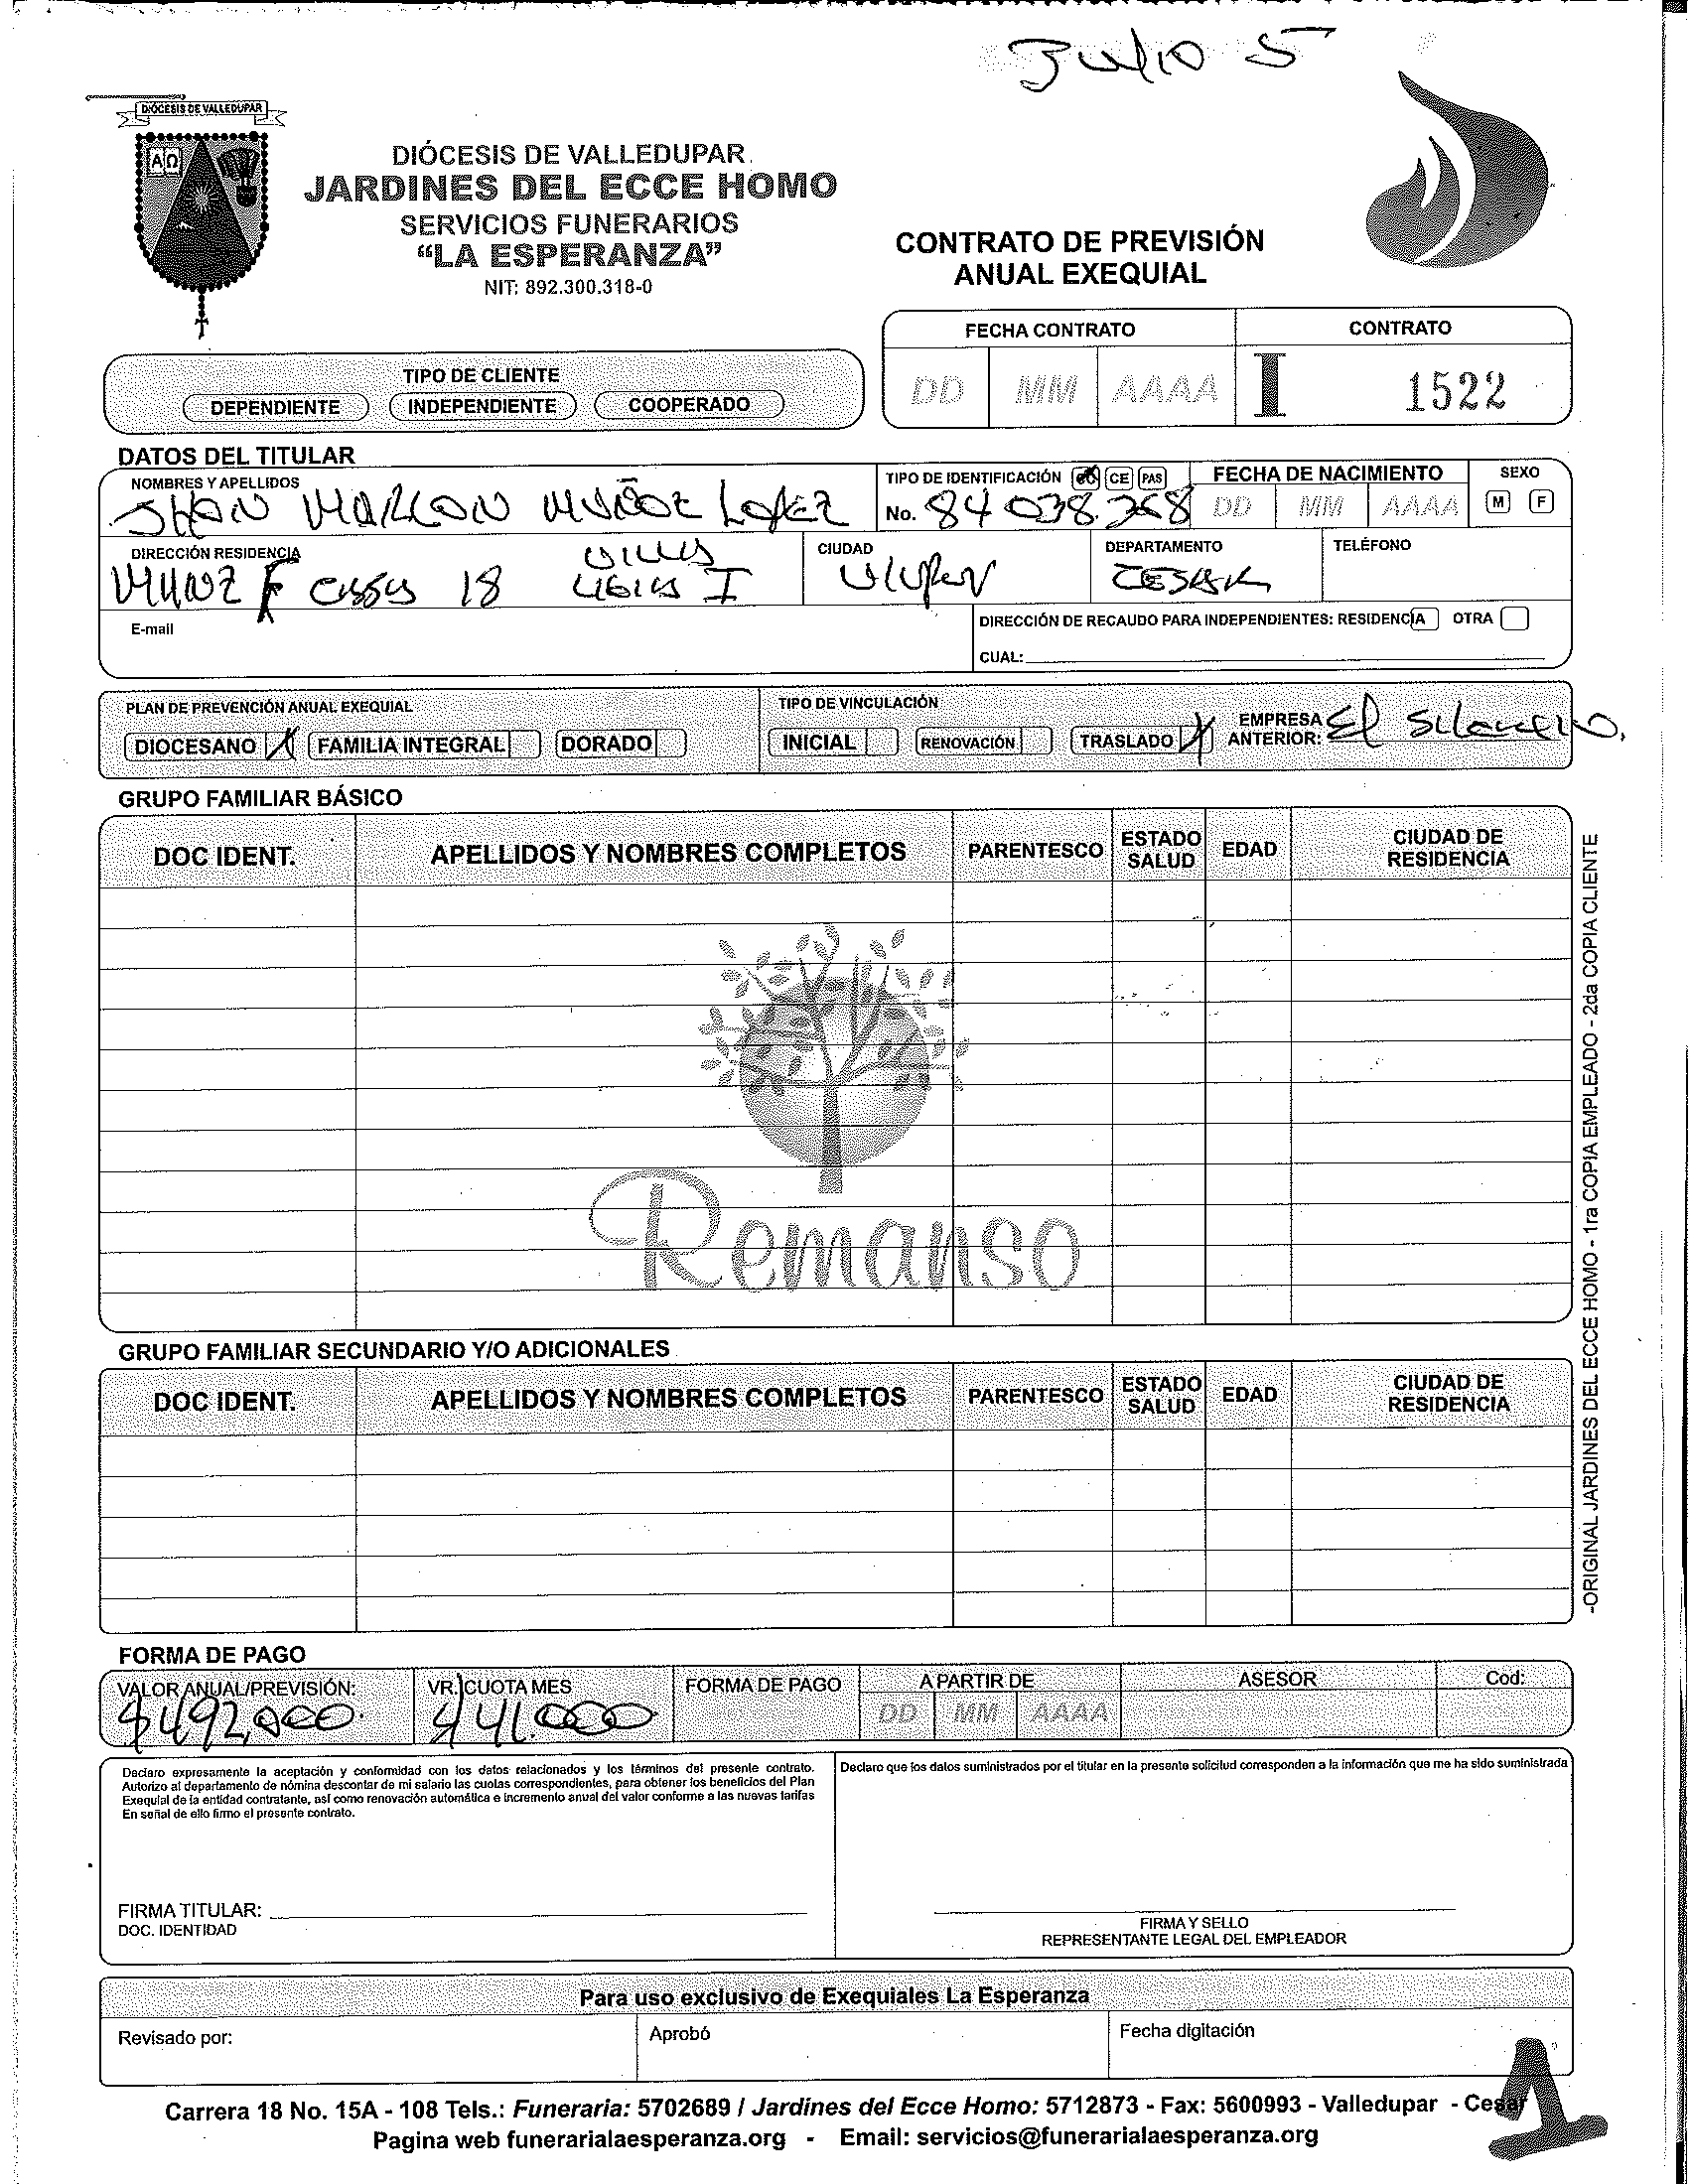 Julio 5
DIÓCESIS DE VALLEDUPAR
AΩ
DIÓCESIS DE VALLEDUPAR
JARDINES DEL ECCE HOMO
SERVICIOS FUNERARIOS
“LA ESPERANZA”
NIT: 892.300.318-0
CONTRATO DE PREVISIÓN
ANUAL EXEQUIAL
FECHA CONTRATO CONTRATO
DD MM AAAA I 1522
TIPO DE CLIENTE
DEPENDIENTE INDEPENDIENTE COOPERADO
DATOS DEL TITULAR
NOMBRES Y APELLIDOS TIPO DE IDENTIFICACIÓN CE PAS FECHA DE NACIMIENTO SEXO
JHON MARLON MUÑOZ LOPEZ No. 84 038.768 DD MM AAAA M F
DIRECCIÓN RESIDENCIA CIUDAD DEPARTAMENTO TELÉFONO
MANZ F CASA 18 VILLA LIGIA I V/UPAR CESAR
E-mail DIRECCIÓN DE RECAUDO PARA INDEPENDIENTES: RESIDENCIA OTRA
CUAL:
PLAN DE PREVENCIÓN ANUAL EXEQUIAL TIPO DE VINCULACIÓN
DIOCESANO X FAMILIA INTEGRAL DORADO INICIAL RENOVACIÓN TRASLADO X EMPRESA ANTERIOR: El Silencio.
GRUPO FAMILIAR BÁSICO
DOC IDENT. APELLIDOS Y NOMBRES COMPLETOS PARENTESCO ESTADO SALUD EDAD CIUDAD DE RESIDENCIA
Remanso
GRUPO FAMILIAR SECUNDARIO Y/O ADICIONALES
DOC IDENT. APELLIDOS Y NOMBRES COMPLETOS PARENTESCO ESTADO SALUD EDAD CIUDAD DE RESIDENCIA
-ORIGINAL JARDINES DEL ECCE HOMO - 1ra COPIA EMPLEADO - 2da COPIA CLIENTE
FORMA DE PAGO
VALOR ANUAL/PREVISIÓN: VR. CUOTA MES FORMA DE PAGO A PARTIR DE ASESOR Cod:
$492,000. $41.000 DD MM AAAA
Declaro expresamente la aceptación y conformidad con los datos relacionados y los términos del presente contrato.
Autorizo al departamento de nómina descontar de mi salario las cuotas correspondientes, para obtener los beneficios del Plan
Exequial de la entidad contratante, así como renovación automática e incremento anual del valor conforme a las nuevas tarifas
En señal de ello firmo el presente contrato.
Declaro que los datos suministrados por el titular en la presente solicitud corresponden a la información que me ha sido suministrada
FIRMA TITULAR:
DOC. IDENTIDAD
FIRMA Y SELLO
REPRESENTANTE LEGAL DEL EMPLEADOR
Para uso exclusivo de Exequiales La Esperanza
Revisado por: Aprobó Fecha digitación
1
Carrera 18 No. 15A - 108 Tels.: Funeraria: 5702689 / Jardines del Ecce Homo: 5712873 - Fax: 5600993 - Valledupar - Cesar
Pagina web funerarialaesperanza.org - Email: servicios@funerarialaesperanza.org